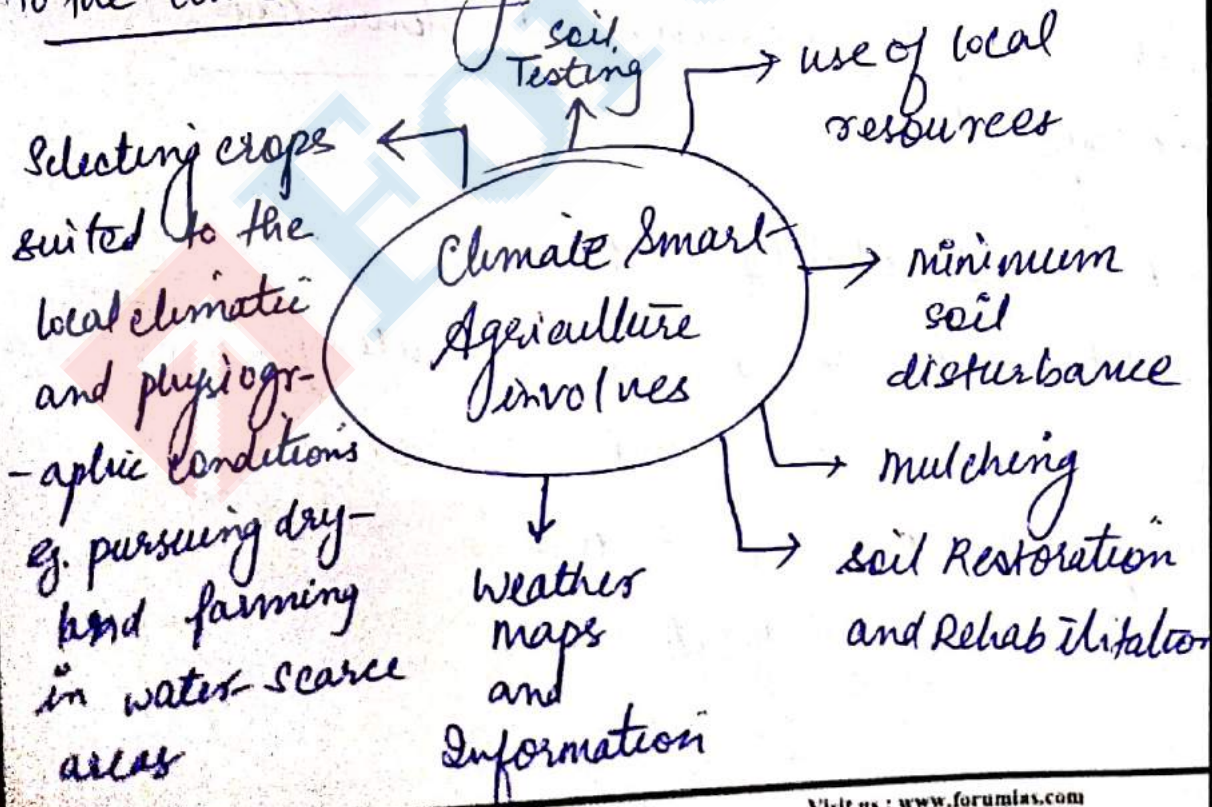 To the
soil
Testing
use of local
resources
Selecting crops
suited to the
local climatic
and physiogr-
-aphic conditions
eg. pursuing dry-
land farming
in water-scarce
areas
Climate Smart
Agriculture
involves
minimum
soil
disturbance
mulching
soil Restoration
and Rehabilitation
Weather
maps
and
Information
Visit us : www.forumias.com